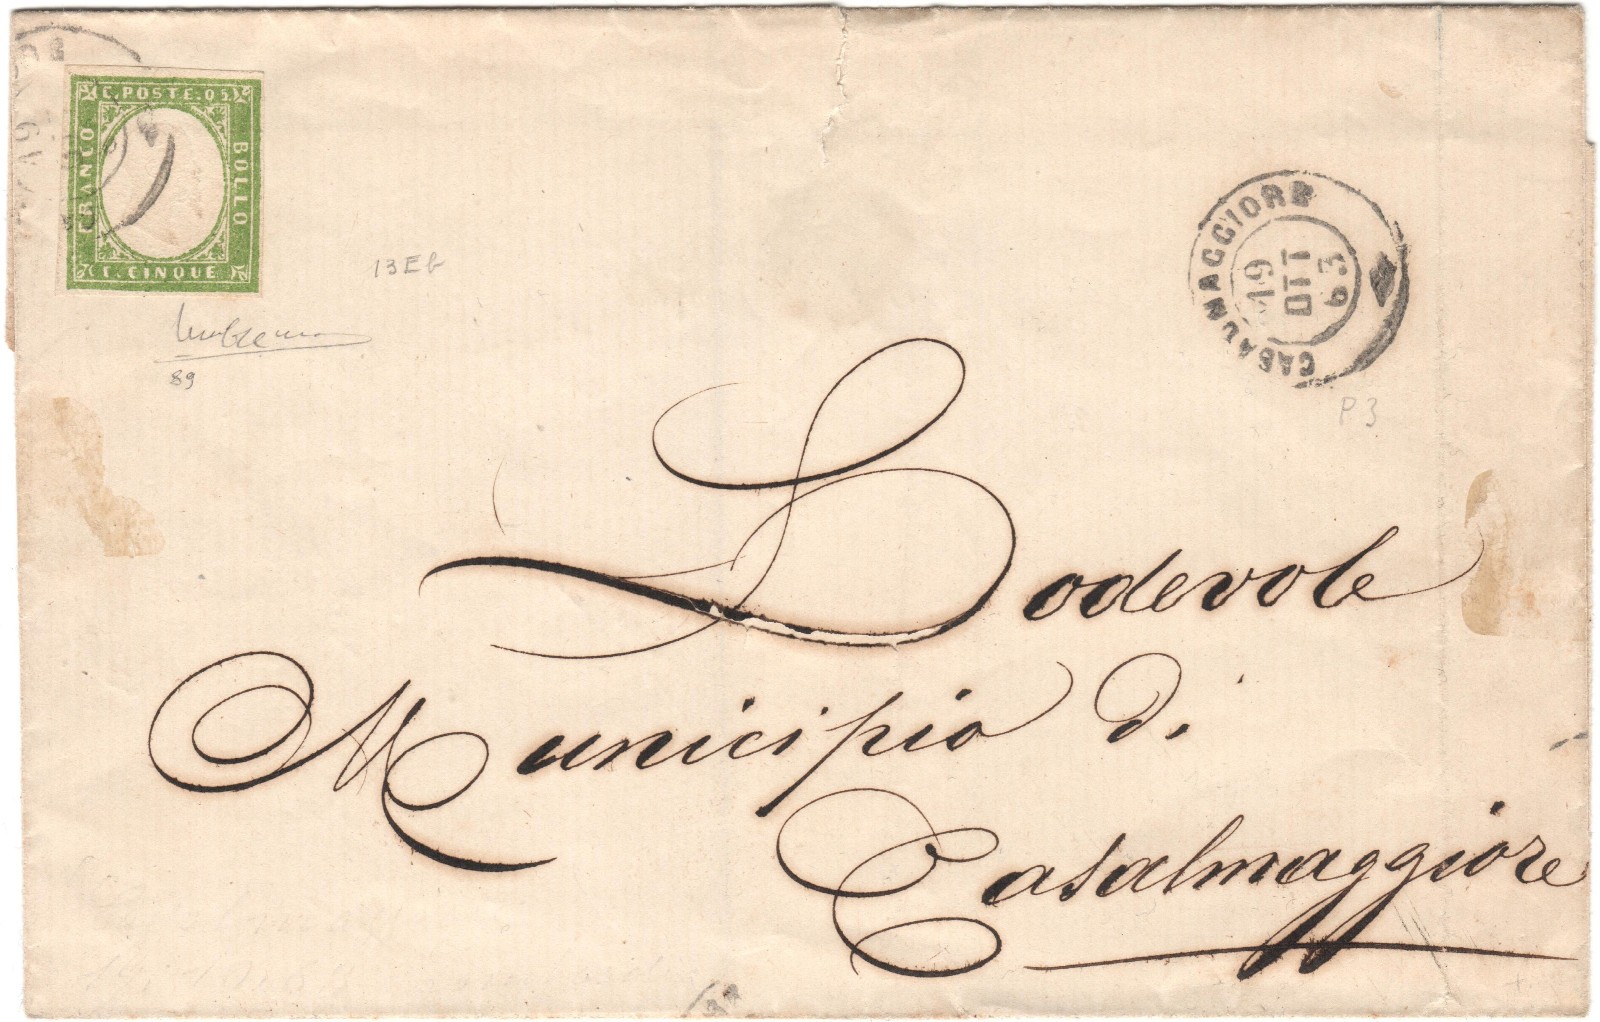 C. POSTE. 05.
FRANCO
BOLLO
C. CINQUE
13Eb
89
CASALMAGGIORE
19
OTT
63
P3
Lodevole
Municipio di
Casalmaggiore